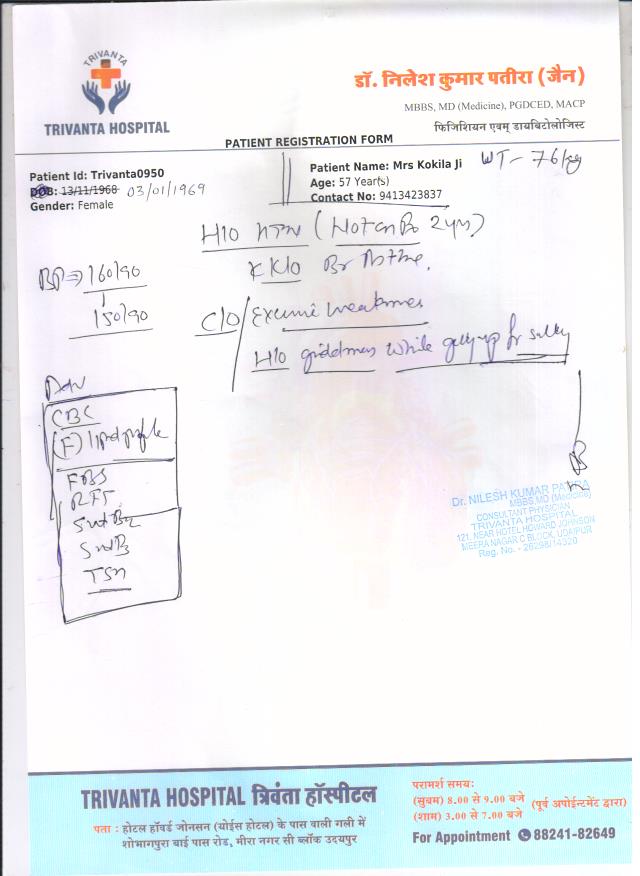 TRIVANTA
TRIVANTA HOSPITAL
डॉ. निलेश कुमार पतीरा (जैन)
MBBS, MD (Medicine), PGDCED, MACP
फिजिशियन एवम् डायबिटोलोजिस्ट
PATIENT REGISTRATION FORM
Patient Id: Trivanta0950
DOB: 13/11/1968 03/01/1969
Gender: Female
Patient Name: Mrs Kokila Ji
Age: 57 Year(s)
Contact No: 9413423837
WT - 76 kg
H/O HTN (Not on 2 yrs)
K/C/O Br Asthe
BP ⇒ 160/90
150/90
C/O weakness
H/O giddiness while getting up
CBC
(F) lipid profile
FBS
RFT
TSH
Dr. NILESH KUMAR PATIRA
MBBS, MD (Medicine)
CONSULTANT PHYSICIAN
TRIVANTA HOSPITAL
121, NEAR HOTEL HOWARD JOHNSON
MEERA NAGAR C BLOCK, UDAIPUR
Reg. No. - 26298/14520
TRIVANTA HOSPITAL त्रिवंता हॉस्पीटल
पता : होटल हॉवर्ड जोनसन (योईस होटल) के पास वाली गली में
शोभागपुरा बाई पास रोड, मीरा नगर सी ब्लॉक उदयपुर
परामर्श समय:
(सुबह) 8.00 से 9.00 बजे
(शाम) 3.00 से 7.00 बजे
(पूर्व अपोईन्टमेंट द्वारा)
For Appointment 88241-82649